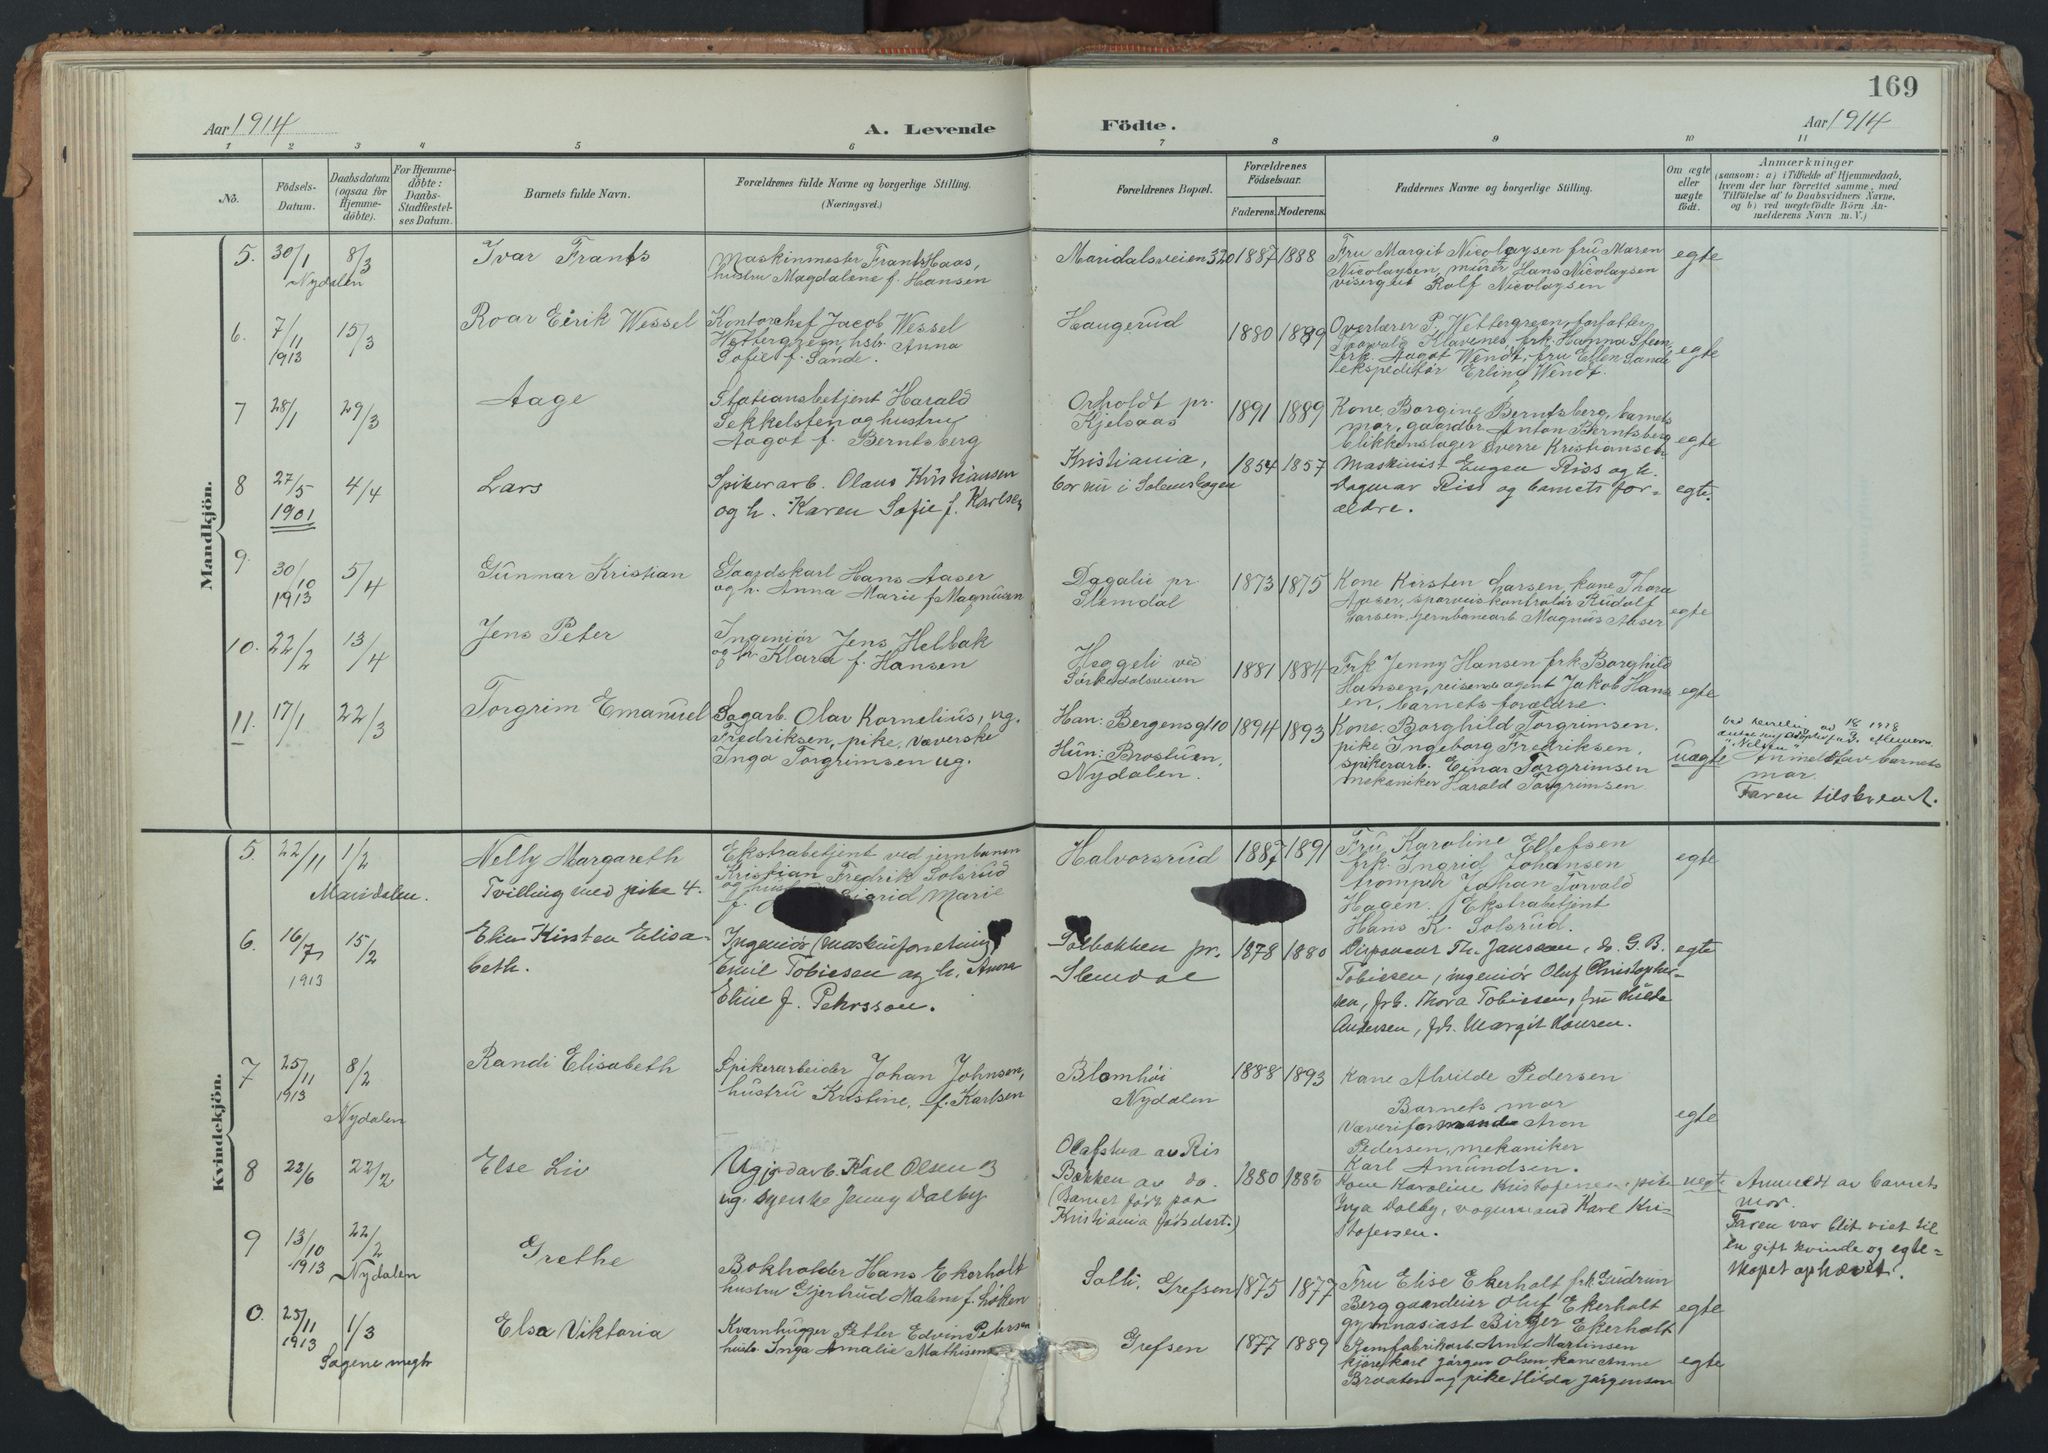 169
Aar 1914
A. Levende
Födte.
Aar 1914
1 2 3 4 5 6 7 8 9 10 11
No.
Födsels-Datum.
Daabsdatum (ogsaa for Hjemme-döbte).
For Hjemme-döbte: Daabs-Stadfæstelses Datum.
Barnets fulde Navn.
Forældrenes fulde Navne og borgerlige Stilling.
(Næringsvei.)
Forældrenes Bopæl.
Forældrenes Födselsaar.
Faderens. Moderens.
Faddernes Navne og borgerlige Stilling.
Om ægte eller uægte födt.
Anmærkninger
(saasom: a) i Tilfælde af Hjemmedaab,
hvem der har forrettet samme, med
Tilföielse af to Daabsvidners Navne,
og b) ved uægtefödte Börn An-
melderens Navn m. V.)
Mandkjön.
5. 30/1 8/3 Ivar Frants
Nydalen
Maskinmester Frants Haas,
hustru Magdalene f. Hansen
Maridalsveien 320 1887 1888
Fru Margit Nicolaysen fru Maren
Nicolaysen, murer Hans Nicolaysen
visergut Rolf Nicolaysen
egte
6. 7/11 1913 15/3 Roar Eirik Wessel
Kontorchef Jacob Wessel
Wettergreen, hstr. Anna
Sofie f. Sande.
Haugerud 1880 1889
Overlærer P. Wettergreen, forfatter
Klavenes, frk. Hanna Stem,
frk. Aagot Wendt, fru Ellen Sande
ekspeditør Erling Wendt.
egte
7 28/1 29/3 Aage
Stationsbetjent Harald
Sekkelsten og hustru
Aagot f. Berntsberg
Orholdt pr.
Kjelsaas
1891 1889
Kone Borgine Berntsberg, barnets
mor, gaardbr Anton Berntsberg
blikkenslager Sverre Kristiansen
egte
8 27/5 1901 4/4 Lars
Spikerarb. Olaus Kristiansen
og h. Karen Sofie f. Karlsen
Kristiania,
bor nu i Solemskogen
1854 1857
Maskinist Eugen Riss og h.
Dagmar Riss og barnets for-
ældre.
egte.
9. 30/10 1913 5/4 Gunnar Kristian
Gaardskarl Hans Aaser
og h. Anna Marie f. Magnusen
Dagalie pr.
Slemdal
1873 1875
Kone Kirsten Larsen, kone Thora
Aaser, sporveiskontrolör Rudolf
Larsen, jernbanearb Magnus Aaser
egte
10. 22/2 13/4 Jens Peter
Ingeniör Jens Helbak
og h. Klara f. Hansen
Heggeli ved
Sørkedalsveien
1881 1884
Frk Jenny Hansen frk Borghild
Hansen, reisende agent Jakob Hans
en, barnets forældre.
egte
11. 17/1 22/3 Torgrim Emanuel
Sagarb. Olav Kornelius, ug.
Fredriksen, pike, væverske
Inga Torgrimsen ug.
Han: Bergensg 10
Hun: Brostuen,
Nydalen.
1894 1893
Kone Borghild Torgrimsen.
pike Ingeborg Fredriksen,
spikerarb. Einar Torgrimsen
mekaniker Harald Torgrimsen
uægte
"Nilsen"
Anmeldt av barnets
mor.
Faren tilskrevet.
Kvindekjön.
5. 22/11 1/2 Nelly Margareth
Maridalen. Tvilling med pike 4.
Ekstrabetjent ved jernbanen
Kristian Fredrik Solsrud
og hustru Sigrid Marie
Halvorsrud 1887 1891
Fru Karoline Ellefsen
frk. Ingrid Johansen
tromper Johan Torvald
Hagen. Ekstrabetjent
Hans K. Solsrud.
egte
6. 16/7 1913 15/2 Elin Kirsten Elisa-
beth.
Ingeniör (maskinforretning)
Emil Tobiesen og h. Anna
Eline f. Pehrsson.
Solbakken pr.
Slemdal
1878 1880
Disponent Th. Janssen, do. G. B.
Tobiesen, ingeniör Oluf Christopher-
sen, frk. Thora Tobiesen, fru Hilda
Andersen, frk. Margit Hansen.
egte
7 25/11 1913 8/2 Randi Elisabeth
Nydalen
Spikerarbeider Johan Johnsen,
hustru Kristine, f. Karlsen
Blomhöi
Nydalen
1888 1893
Kone Alvilde Pedersen
Barnets mor
Væveriformand Aron
Pedersen, mekaniker
Karl Amundsen.
egte
8 22/6 22/2 Else Liv
Ug. jordarb. Karl Olsen
ug. syerske Jenny Dalby
Olafstua av Ris
Bakken av do.
(Barnet födt paa
Kristiania födselsst.)
1880 1885
Kone Karoline Kristofersen, pike
Inga Dalby, vognmand Karl Kri-
stofersen.
uegte
Anmeldt av barnets
mor.
Faren var blit viet til
en gift kvinde og egte-
skapet ophævet.
9 13/10 1913 22/2 Grethe
Nydalen
Bokholder Hans Ekerholt
hustru Gjertrud Malene f. Løken
Solli, Grefsen 1875 1877
Fru Elise Ekerholt frk Gudrun
Berg gaardeier Oluf Ekerholt
gymnasiast Birger Ekerholt
egte
0. 25/11 1913 1/3 Elsa Viktoria
Sagene megh
Kværnhugger Petter Edvin Petersen
hustr. Inga Amalie Mathisen
Grefsen 1877 1889
Arnt Martinsen
kjörekarl Jörgen Olsen, kone Anne
Braaten og pike Hilda Jörgensen
egte